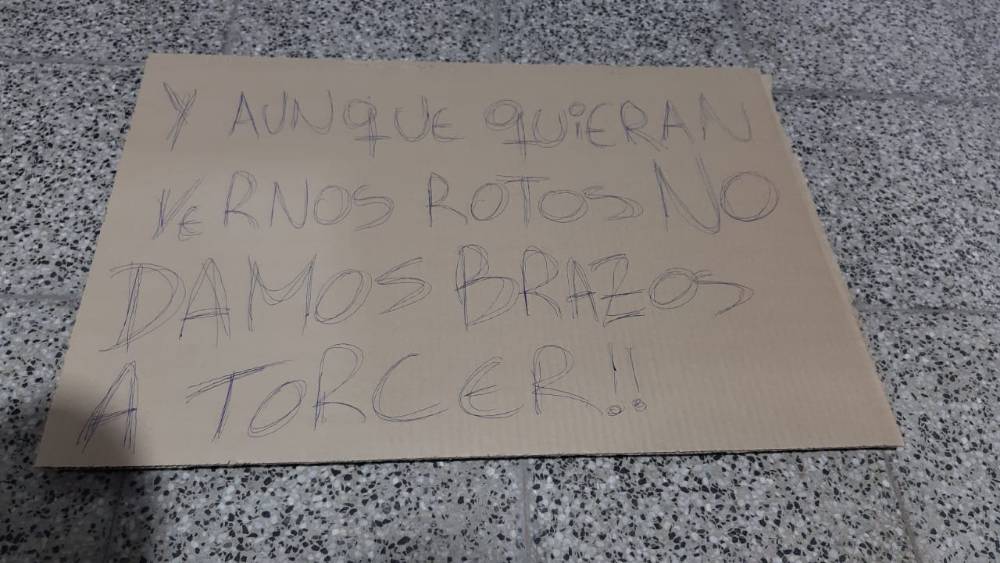 Y AUNQUE QUIERAN
VERNOS ROTOS NO
DAMOS BRAZOS
A TORCER!!